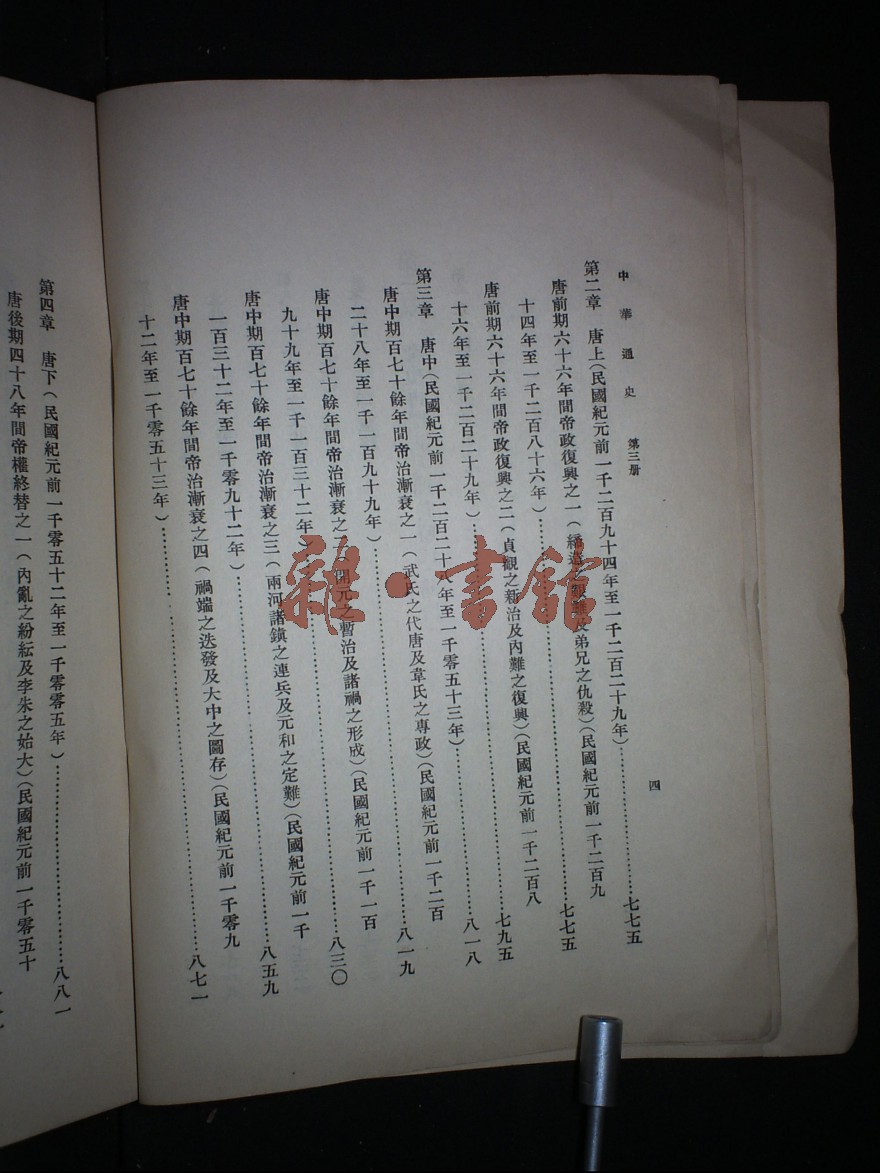 中華通史　第三册　四
第二章　唐上(民國紀元前一千二百九十四年至一千二百二十九年)……七七五
唐前期六十六年間帝政復興之一(艱難及弟兄之仇殺)(民國紀元前一千二百九
十四年至一千二百八十六年)……七七五
唐前期六十六年間帝政復興之二(貞觀之新治及內難之復興)(民國紀元前一千二百八
十六年至一千二百二十九年)……七九五
第三章　唐中(民國紀元前一千二百二十八年至一千零五十三年)……八一八
唐中期百七十餘年間帝治漸衰之一(武氏之代唐及韋氏之專政)(民國紀元前一千二百
二十八年至一千一百九十九年)……八一九
唐中期百七十餘年間帝治漸衰之二(開元之暫治及諸禍之形成)(民國紀元前一千一百
九十九年至一千一百三十二年)……八三〇
唐中期百七十餘年間帝治漸衰之三(兩河諸鎮之連兵及元和之定難)(民國紀元前一千
一百三十二年至一千零九十二年)……八五九
唐中期百七十餘年間帝治漸衰之四(禍端之迭發及大中之圖存)(民國紀元前一千零九
十二年至一千零五十三年)……八七一
第四章　唐下(民國紀元前一千零五十二年至一千零零五年)……八八一
唐後期四十八年間帝權終替之一(內亂之紛紜及李朱之始大)(民國紀元前一千零五十
雜·書館